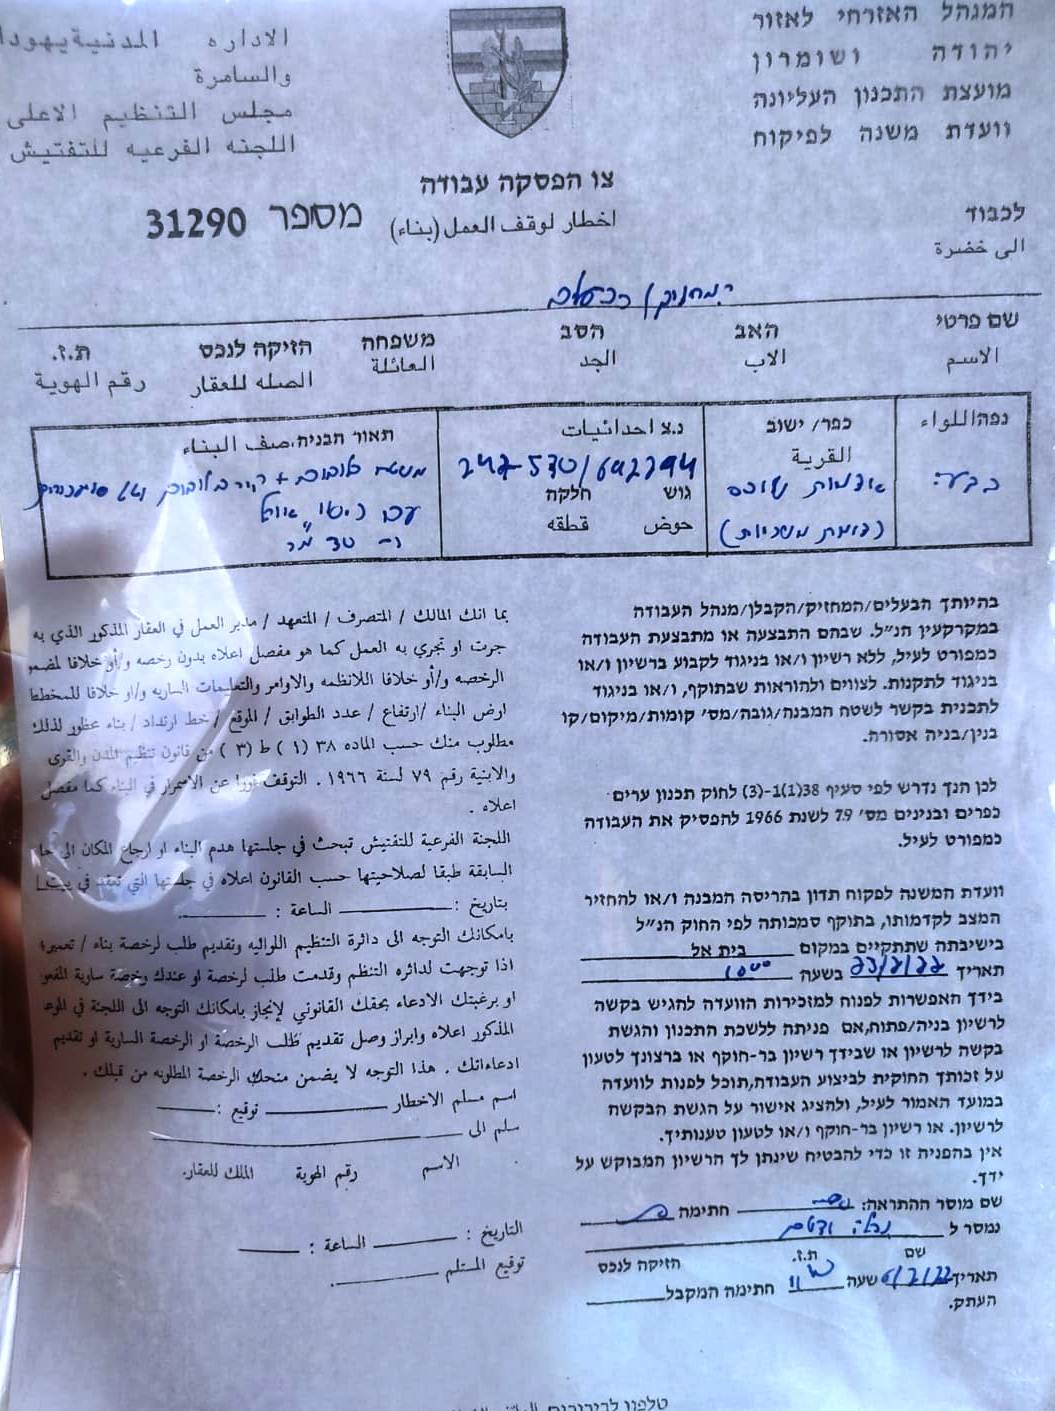 המנהל האזרחי לאזור
יהודה ושומרון
מועצת התכנון העליונה
וועדת משנה לפיקוח
الاداره المدنية يهودا
والسامرة
مجلس التنظيم الاعلى
اللجنه الفرعيه للتفتيش
צו הפסקה עבודה
اخطار لوقف العمل (بناء)
מספר 31290
לכבוד
الى خضرة
שם פרטי האב הסב משפחה הזיקה לנכס ת.ז.
الاسم الاب الجد العائلة الصله للعقار رقم الهوية
נפה اللواء
כפר/ ישוב
القرية
נ.צ احداثيات
247530/642294
גוש חלקה
حوض قطقه
תאור הבניה، صف البناء
בהיותך הבעלים/המחזיק/הקבלן/מנהל העבודה
במקרקעין הנ"ל. שבהם התבצעה או מתבצעת העבודה
כמפורט לעיל, ללא רשיון ו/או בניגוד לקבוע ברשיון ו/או
בניגוד לתקנות. לצווים ולהוראות שבתוקף, ו/או בניגוד
לתכנית בקשר לשטח המבנה/גובה/מס' קומות/מיקום/קו
בנין/בניה אסורת.
לכן הנך נדרש לפי סעיף 38(1)1-(3) לחוק תכנון ערים
כפרים ובנינים מס' 79 לשנת 1966 להפסיק את העבודה
כמפורט לעיל.
וועדת המשנה לפקוח תדון בהריסה המבנה ו/או להחזיר
המצב לקדמותו, בתוקף סמכותה לפי החוק הנ"ל
בישיבתה שתתקיים במקום בית אל
תאריך 23/2/22 בשעה 10:00
בידך האפשרות לפנות למזכירות הוועדה להגיש בקשה
לרשיון בניה/פתוח,אם פניתה ללשכת התכנון והגשת
בקשה לרשיון או שבידך רשיון בר-חוקף או ברצונך לטעון
על זכותך החוקית לביצוע העבודה,תוכל לפנות לוועדה
במועד האמור לעיל, ולהציג אישור על הגשת הבקשה
לרשיון. או רשיון בר-חוקף ו/או לטעון טענותיך.
אין בהפניה זו כדי להבטיח שינתן לך הרשיון המבוקש על
ידך.
שם מוסר ההתראה: חתימה
נמסר ל
שם ת.ז. הזיקה לנכס
תאריך 6/2/22 שעה 11 חתימה המקבל
העתק.
بما انك المالك / المتصرف / المتعهد / مدير العمل في العقار المذكور الذي به
جرت او تجري به العمل كما هو مفصل اعلاه بدون رخصه و/أو خلافا
الرخصه و/أو خلافا للانظمه والاوامر والتعليمات الساريه و/او خلافا للمخطط
ارض البناء /ارتفاع / عدد الطوابق / الموقع / خط ارتداد / بناء محظور لذلك
مطلوب منك حسب الماده ٣٨ (١) ط (٣) من قانون تنظيم المدن والقرى
والابنية رقم ٧٩ لسنة ١٩٦٦ . التوقف فورا عن الاسمرار في البناء كما مفصل
اعلاه .
اللجنة الفرعية للتفتيش تبحث في جلستها هدم البناء او ارجاع المكان الى
السابقة طبقا لصلاحيتها حسب القانون اعلاه في جلستها التي تعقد في
بتاريخ : الساعة :
بامكانك التوجه الى دائرة التنظيم اللوائيه وتقديم طلب لرخصة بناء / تعمير
اذا توجهت لدائره التنظم وقدمت طلب لرخصة او عندك رخصة سارية
او برغبتك الادعاء بحقك القانوني لإنجاز بامكانك التوجه الى اللجنة في
المذكور اعلاه وابراز وصل تقديم طلب الرخصة او الرخصة السارية او تقديم
ادعاءاتك . هذا التوجه لا يضمن منحك الرخصة المطلوبه من قبلك .
اسم مسلم الاخطار توقيع :
سلم الى
الاسم رقم الهوية الملك للعقار.
التاريخ : الساعة :
توقيع المستلم